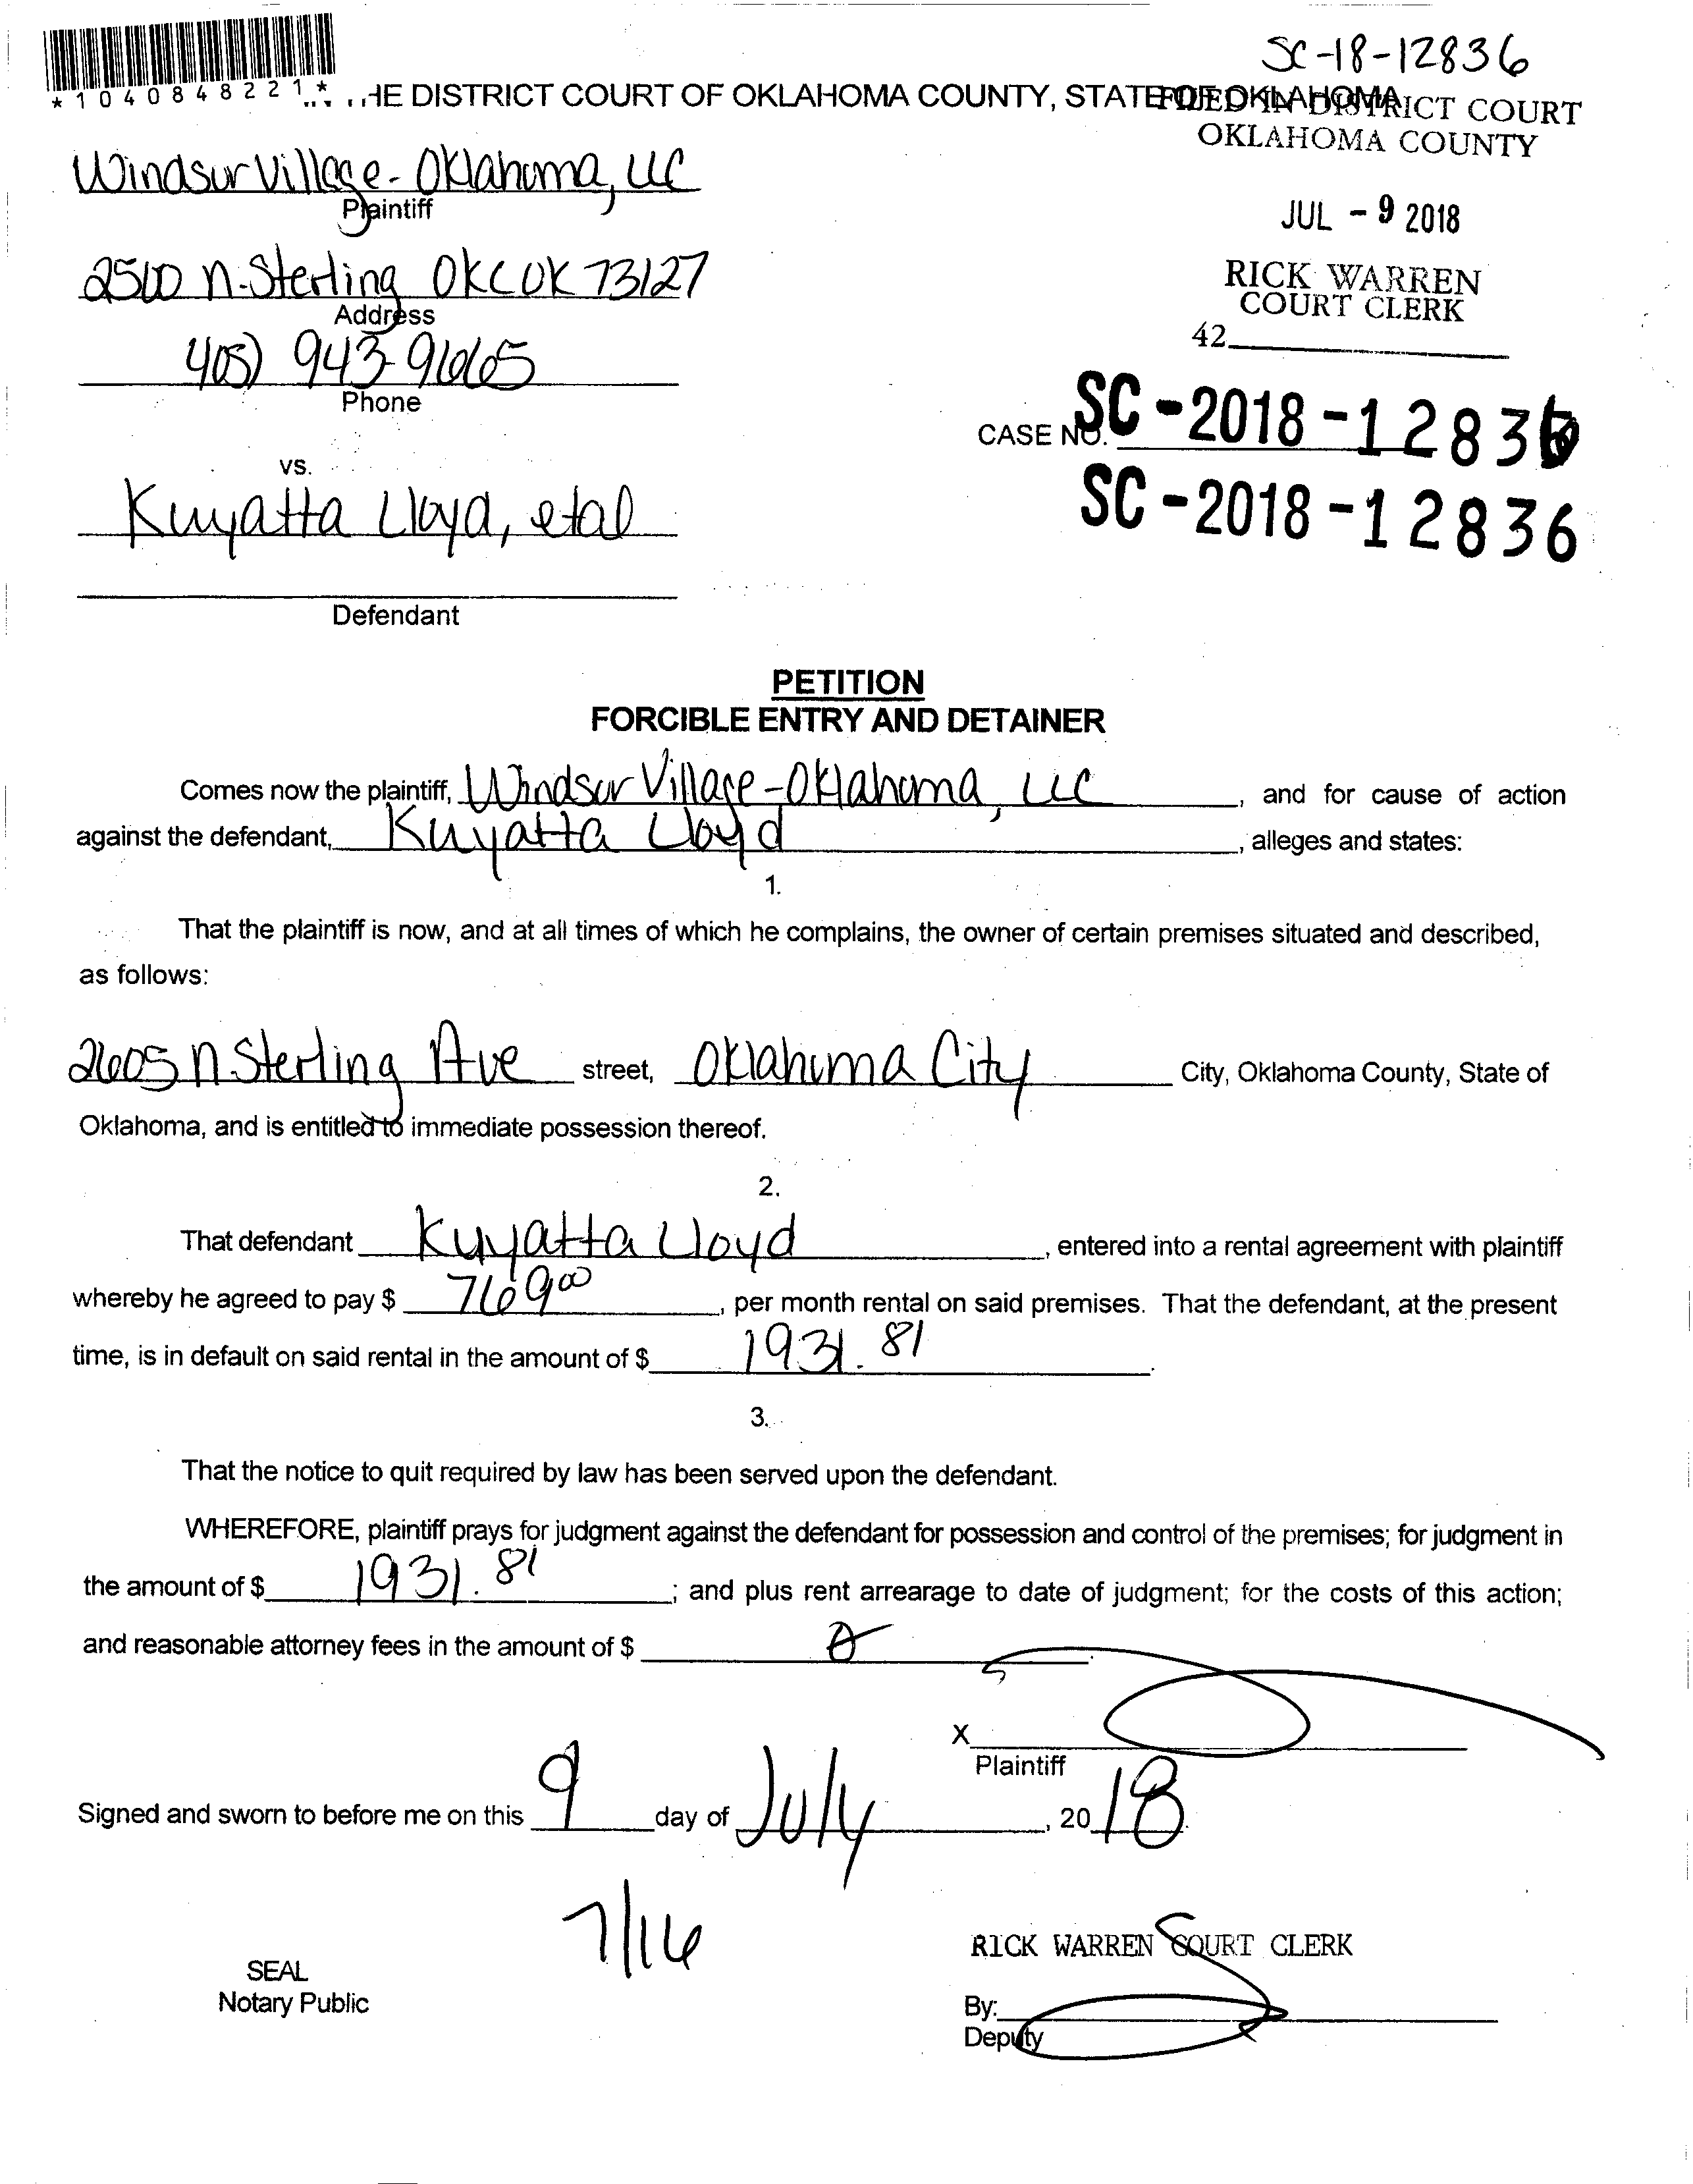 SC-18-12836
*1040848221*
HE DISTRICT COURT OF OKLAHOMA COUNTY, STATE OF OKLAHOMA
FILED IN DISTRICT COURT
OKLAHOMA COUNTY
JUL - 9 2018
RICK WARREN
COURT CLERK
42
Windsor Village - Oklahoma, LLC
Plaintiff
2500 N. Sterling OKC OK 73127
Address
405) 943-9665
Phone
CASE NO. SC-2018-12836
SC-2018-12836
vs.
Kuyatta Lloyd, etal
Defendant
PETITION
FORCIBLE ENTRY AND DETAINER
Comes now the plaintiff, Windsor Village - Oklahoma, LLC, and for cause of action
against the defendant, Kuyatta Lloyd, alleges and states:
1.
That the plaintiff is now, and at all times of which he complains, the owner of certain premises situated and described,
as follows:
2605 N Sterling Ave street, Oklahoma City City, Oklahoma County, State of
Oklahoma, and is entitled to immediate possession thereof.
2.
That defendant Kuyatta Lloyd, entered into a rental agreement with plaintiff
whereby he agreed to pay $ 769 00, per month rental on said premises. That the defendant, at the present
time, is in default on said rental in the amount of $ 1931.81.
3.
That the notice to quit required by law has been served upon the defendant.
WHEREFORE, plaintiff prays for judgment against the defendant for possession and control of the premises; for judgment in
the amount of $ 1931.81; and plus rent arrearage to date of judgment; for the costs of this action;
and reasonable attorney fees in the amount of $ 0.
X
Plaintiff
Signed and sworn to before me on this 9 day of July, 20 18.
7/16
RICK WARREN COURT CLERK
SEAL
Notary Public
By:
Deputy